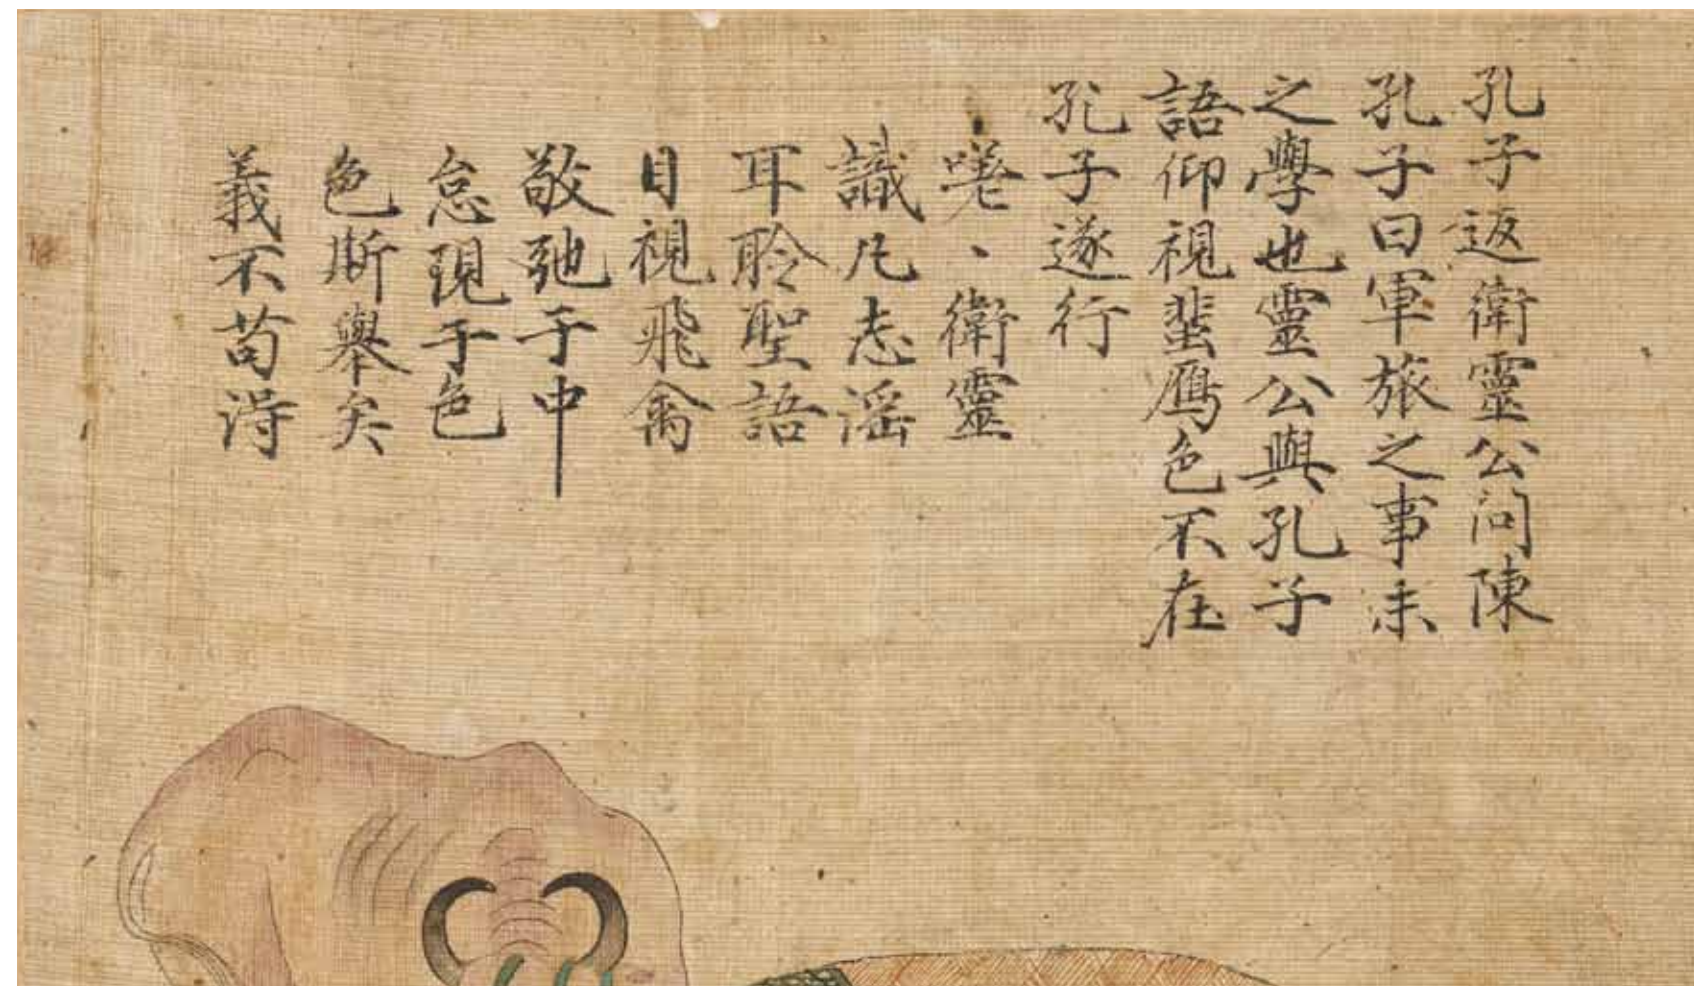 孔子返衛靈公问陳
孔子曰軍旅之事未
之學也靈公與孔子
語仰視蜚鴈色不在
孔子遂行
嘊、衛靈
識凡志滛
耳聆聖語
目視飛禽
敬弛于中
怠現于色
色斯舉矣
義不苟淂